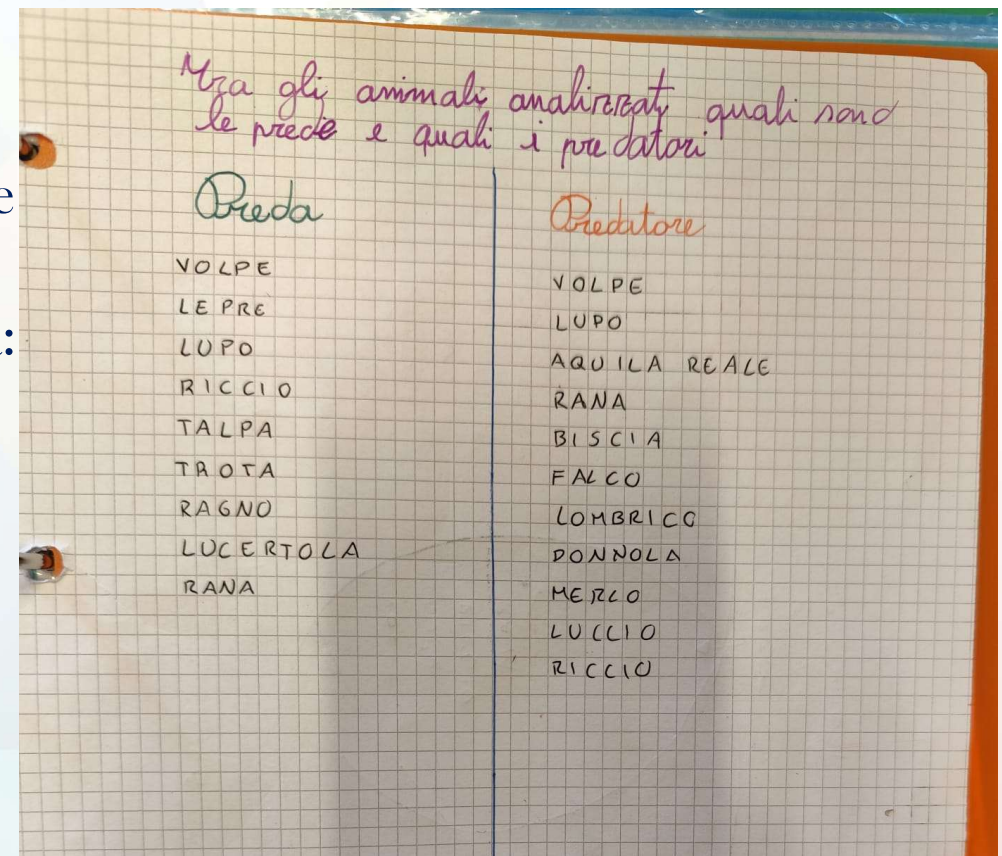 Tra gli animali analizzati quali sono
le prede e quali i predatori
Preda
VOLPE
LEPRE
LUPO
RICCIO
TALPA
TROTA
RAGNO
LUCERTOLA
RANA
Predatore
VOLPE
LUPO
AQUILA REALE
RANA
BISCIA
FALCO
LOMBRICO
DONNOLA
MERLO
LUCCIO
RICCIO